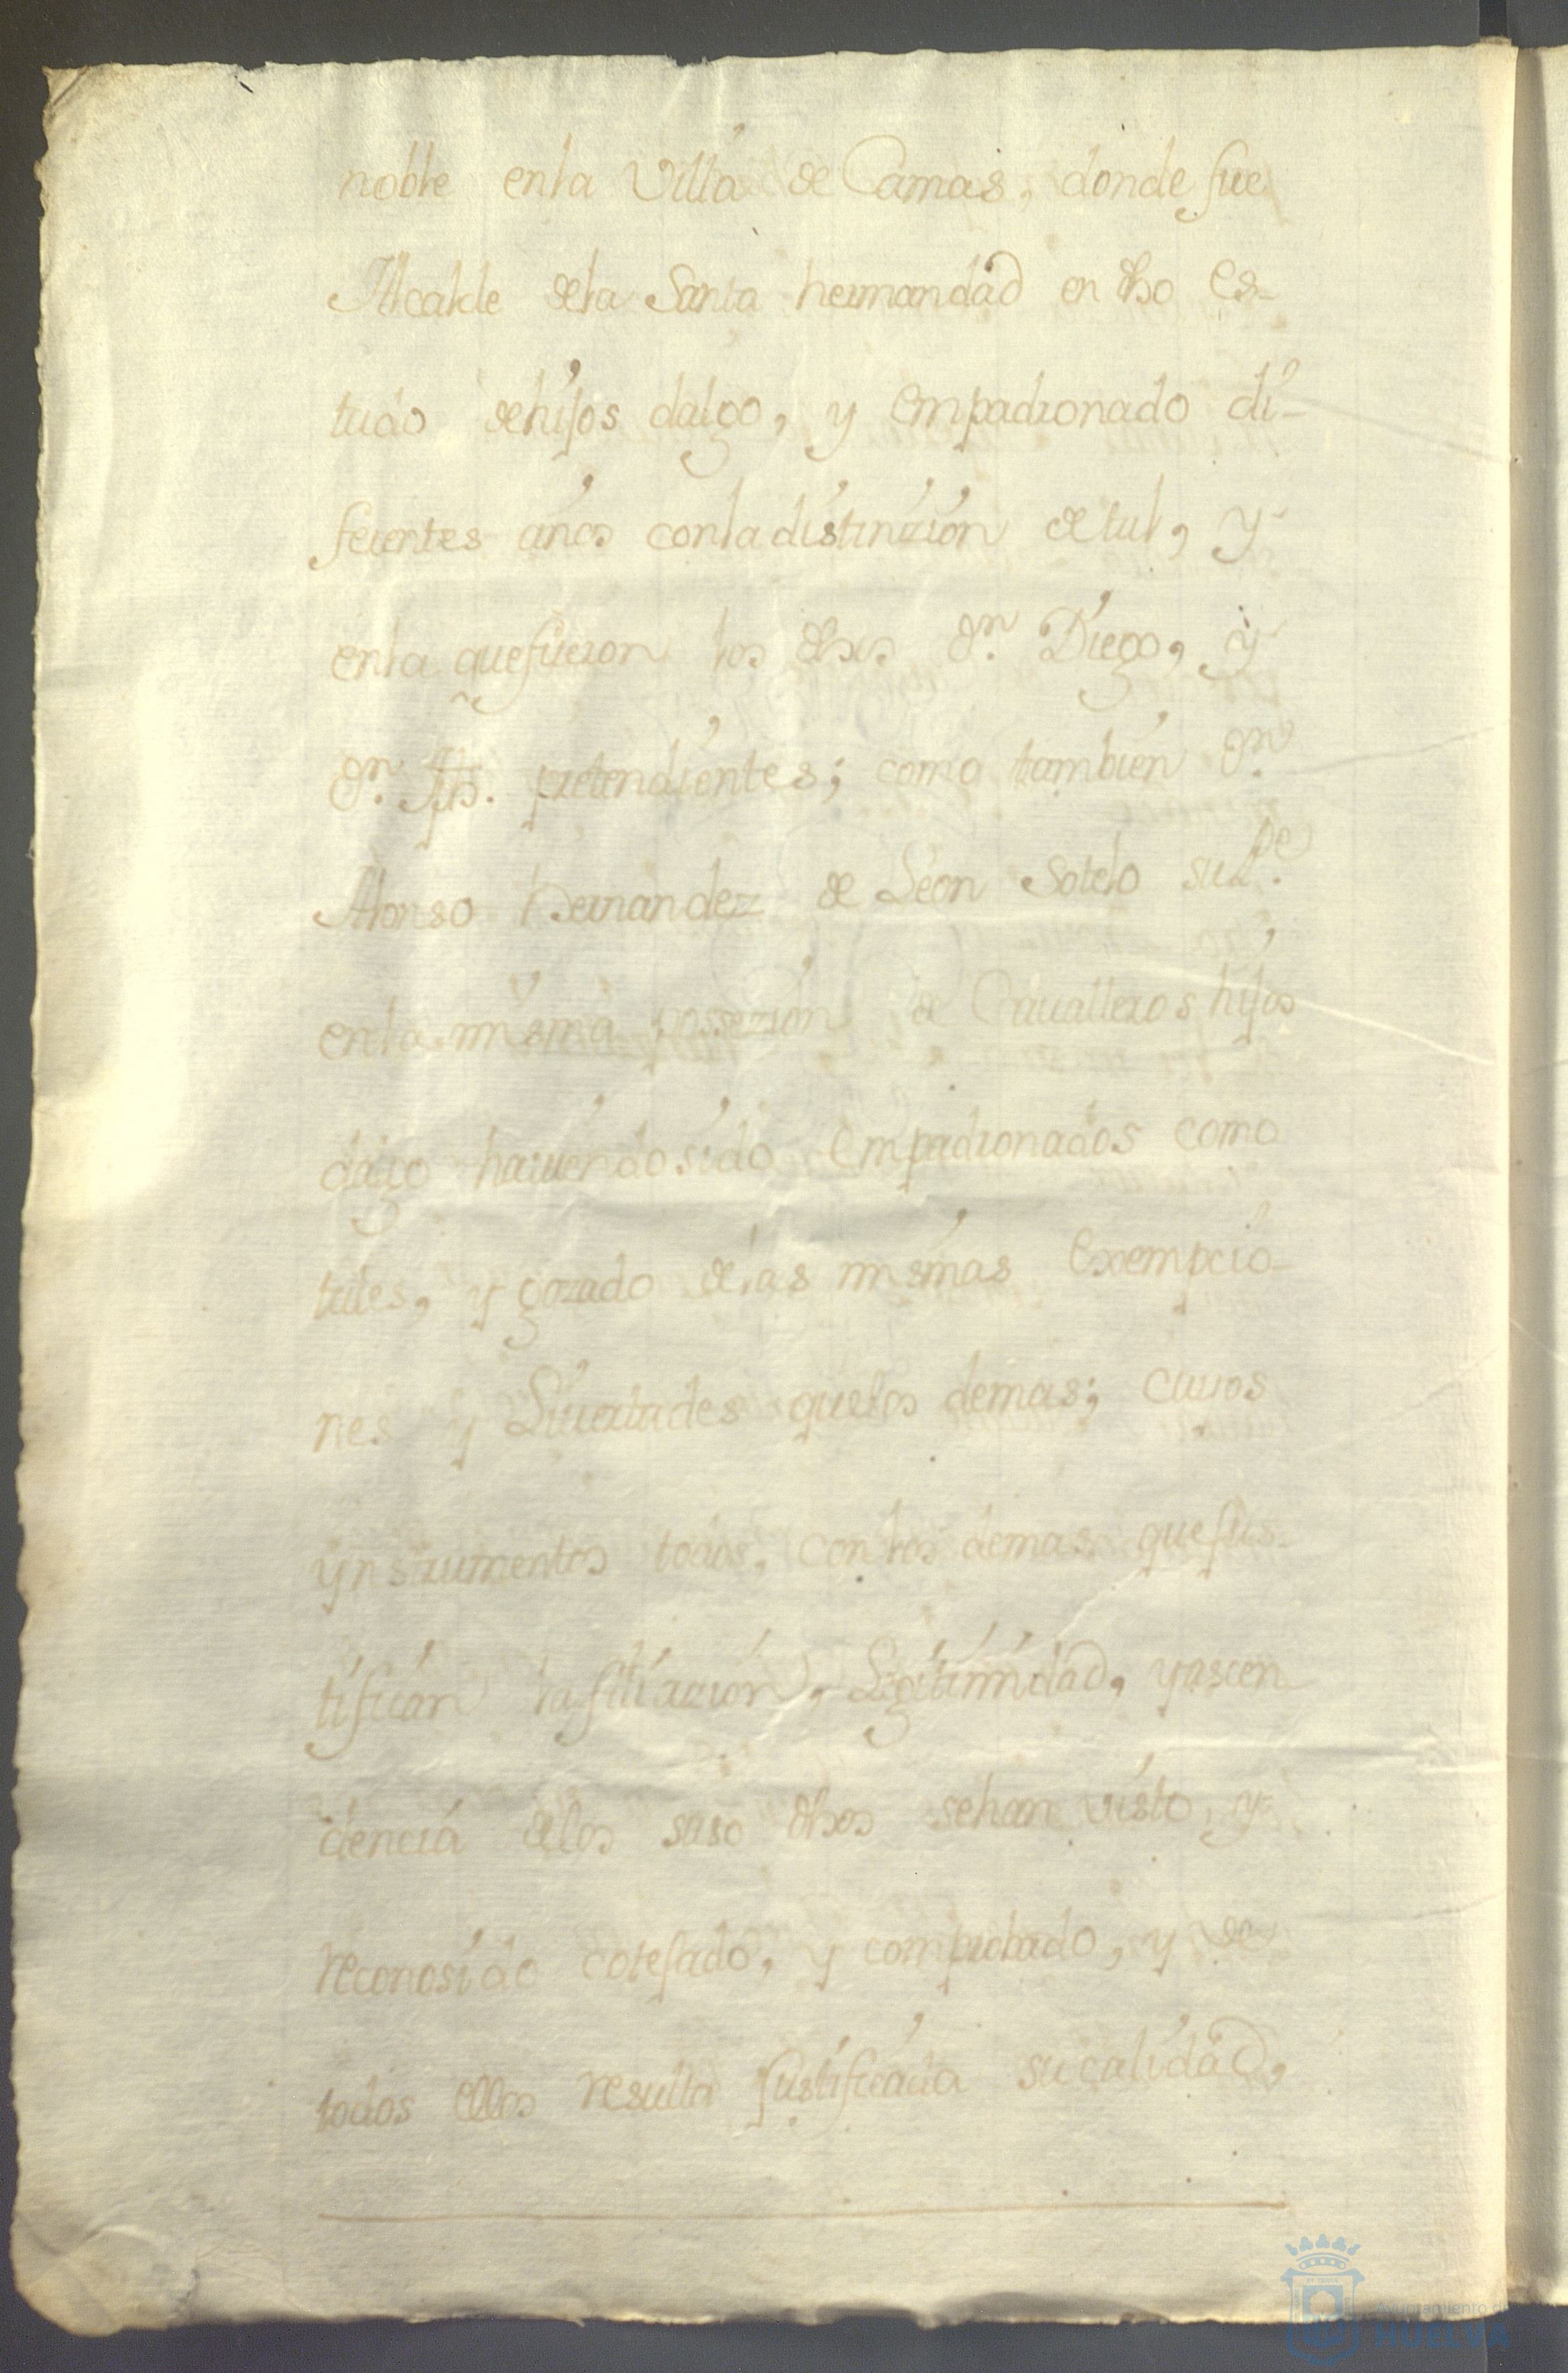 noble enla Villa de Camas, donde fue
Alcalde dela Santa hermandad en dho es-
tado dehijos dalgo, y empadronado di-
ferentes años conladistinzion de tal, y
enla quefueron los dhos Dn. Diego, y
Dn. Jph. pretendientes; como tambien Dn.
Alonso Hernandez de Leon Sotelo su Pe.
enla misma possezion de Cavalleros hijos
dalgo haviendosido empadronados como
tales, y gozado delas mismas Exempcio-
nes y Livertades quelos demas; cuios
ynstrumentos todos, conlos demas quejus-
tifican lafiliazion, Legitimidad, yascen
dencia delos suso dhos sehan visto, y
reconosido cotejado, y comprobado, y de
todos ellos resulta justificada sucalidad,
Ayuntamiento de
HUELVA